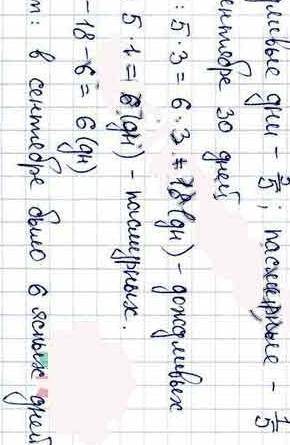 дливые дни - 3/5; пасмурные - 1/5
ентябре 30 дней
: 5 · 3 = 6 · 3 = 18 (дн) - дождливых
5 · 1 = 6 (дн) - пасмурных.
- 18 - 6 = 6 (дн)
т: в сентябре было 6 ясных дней